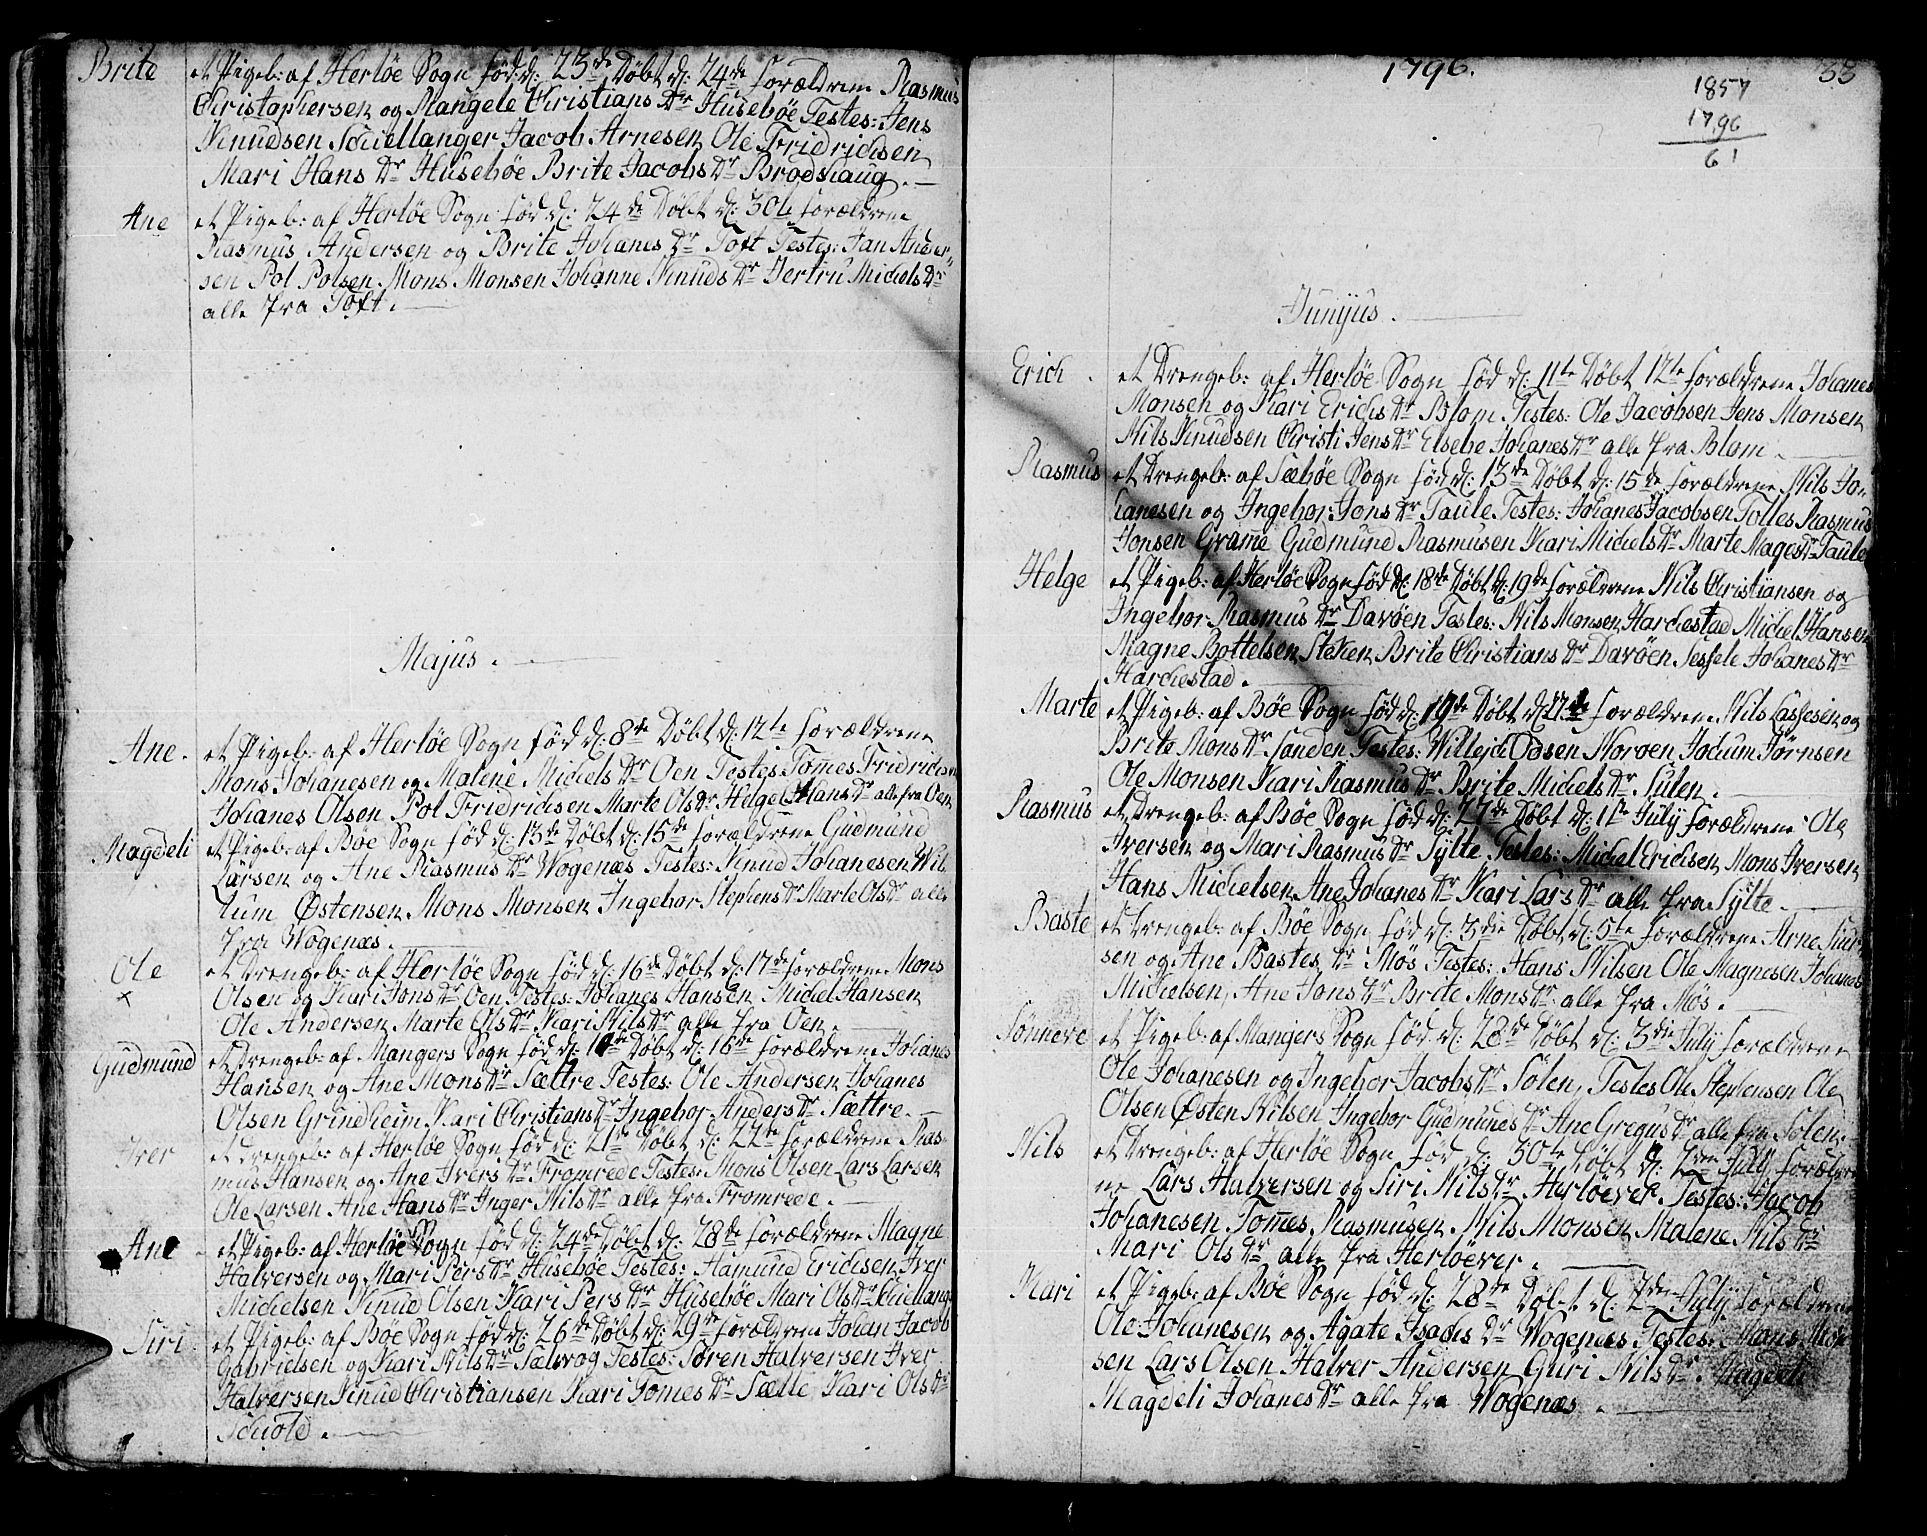 Brite et Pigeb: af Herløe Sogn fød d: 23de Døbt d: 24de forældrene Rasmus
Christophersen og Mangele Christians Dr Husebøe Testes: Jens
Knudsen Schellanger Jacob Arnesen Ole Fridrichsen
Mari Hans Dr Husebøe Brite Jacobs Dr Brodshaug.
Ane et Pigeb: af Herløe Sogn fød d: 24de Døbt d: 30te forældrene
Rasmus Andersen og Brite Johanes Dr Toft Testes: Jan Ander-
sen Pol Polsen Mons Monsen Johanne Knuds Dr Jertru Michels Dr
alle fra Toft.
Majus.
Ane. et Pigeb: af Herløe Sogn fød d: 8de Døbt d: 12te forældrene
Mons Johanesen og Malene Michels Dr Oen Testes Tommes Fridrichsen
Johanes Olsen Pol Fridrichsen Marte Ols Dr Helge Hans Dr alle fra Oen
Magdeli et Pigeb: af Bøe Sogn fød d: 13de Døbt d: 15de forældrene Gudmund
Larsen og Ane Rasmus Dr Wogenæs Testes: Knud Johanesen Wil-
lum Østensen Mons Monsen Ingebor Stephens Dr Marte Ols Dr alle
fra Wogenæs.
Ole et Drengeb: af Herløe Sogn fød d: 16de Døbt d: 17de forældrene Mons
x Olsen og Kari Jons Dr Oen Testes: Johanes Hansen Michel Hansen
Ole Andersen Marte Ols Dr Kari Nils Dr alle fra Oen.
Gudmund et Drengeb: af Mangers Sogn fød d: 10de Døbt d: 16de forældrene Johanes
Hansen og Ane Mons Dr Sættre Testes: Ole Andersen Johanes
Olsen Grindheim Kari Christians Dr Ingebor Anders Dr Sættre.
Iver et Drengeb: af Herløe Sogn fød d: 21de Døbt d: 22de forældrene Ras-
mus Hansen og Ane Ivers Dr Fromrede Testes: Mons Olsen Lars Larsen
Ole Larsen Ane Hans Dr Inger Nils Dr alle fra Fromrede.
Ane et Pigeb: af Herløe Sogn fød d: 24de Døbt d: 28de forældrene Magne
Halversen og Mari Pers Dr Husebøe Testes: Hamund Erichsen Iver
Michelsen Knud Olsen Kari Pers Dr Husebøe Mari Ols Dr Schellange
Siri et Pigeb: af Bøe Sogn fød d: 26de Døbt d: 29de forældrene Johan Jacob
Gabrielsen og Kari Nils Dr Sælvog Testes: Søren Halversen Iver
Halversen Knud Christiansen Kari Tomes Dr Sælle Kari Ols Dr
Schold.
1796.
33
1857
1796
61
Junijus.
Erich. et Drengeb: af Herløe Sogn fød d: 11te Døbt 12te forældrene Johanes
Monsen og Kari Erichs Dr Blom Testes: Ole Jacobsen Jens Monsen
Nils Knudsen Christi Jens Dr Elsebe Johanes Dr alle fra Blom.
Rasmus et Drengeb: af Sæbøe Sogn fød d: 13de Døbt d: 15de forældrene Nils Jo-
hanesen og Ingebor Jons Dr Taule Testes: Johanes Jacobsen Tolles Rasmus
Jonsen Gramme Gudmund Rasmusen Kari Michels Dr Marte Mages Dr Taule
Helge et Pigeb: af Herløe Sogn fød d: 18de Døbt d: 19de forældrene Nils Christiansen og
Ingebor Rasmus Dr Davøen Testes: Nils Monsen Harchestad Michel Hansen
Magne Bottelsen Steken Brite Christians Dr Davøen Sessele Johanes Dr
Harchestad.
Marte et Pigeb: af Bøe Sogn fød d: 19de Døbt d: 27de forældrene Nils Lassesen og
Brite Mons Dr Sanden Testes: Willejch Odsen Noroen Jochum Jørnsen
Ole Monsen Kari Rasmus Dr Brite Michels Dr Sulen.
Rasmus et Drengeb: af Bøe Sogn fød d: 27de Døbt d: 1te July forældrene Ole
Iversen og Mari Rasmus Dr Sylte Testes: Michel Erichsen Mons Iversen
Hans Michelsen Ane Johanes Dr Kari Lars Dr alle fra Sylte.
Baste et Drengeb: af Bøe Sogn fød d: 3die Døbt d: 5te forældrene Arne Siur-
sen og Ane Bastes Dr Møs Testes: Hans Nilsen Ole Magnesen Johanes
Michelsen, Ane Jons Dr Brite Mons Dr alle fra Møs.
Sønneve et Pigeb: af Mangers Sogn fød d: 28de Døbt d: 3die July forældrene
Ole Johanesen og Ingebor Jacobs Dr Solen, Testes Ole Stephensen Ole
Olsen Østen Nilsen Ingebor Gudmunds Dr Ane Gregus Dr alle fra Solen.
Nils et Drengeb: af Herløe Sogn fød d: 30te Døbt d: 2den July foræld-
ne Lars Halversen og Siri Nils Dr Herløever Testes: Jacob
Johanesen Tommes Rasmusen Nils Monsen Malene Nils Dr
Mari Ols Dr alle fra Herløever.
Kari et Pigeb: af Bøe Sogn fød d: 28de Døbt d: 2den July forældrene
Ole Johanesen og Agate Isachs Dr Wogenæs Testes: Mons Mon-
sen Lars Olsen Halver Andersen Guri Nils Dr Magdeli
Magdeli Johanes Dr alle fra Wogenæs.